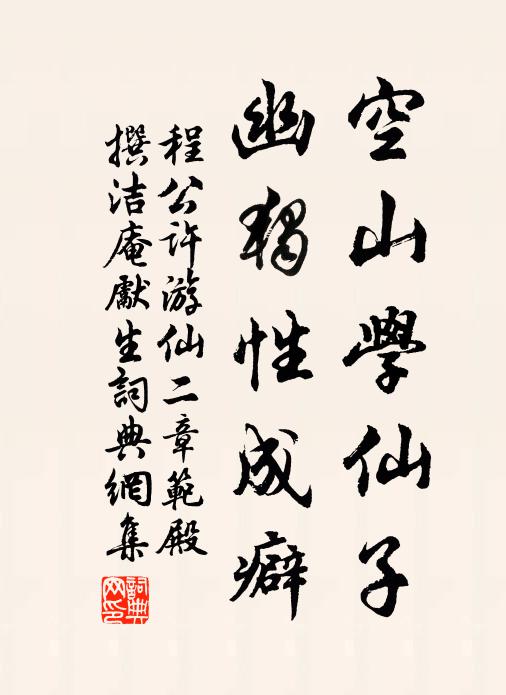 空山學仙子
幽獨性成癖
程公许游仙二章範殿
撰洁庵獻生詞典網集
詞典网印